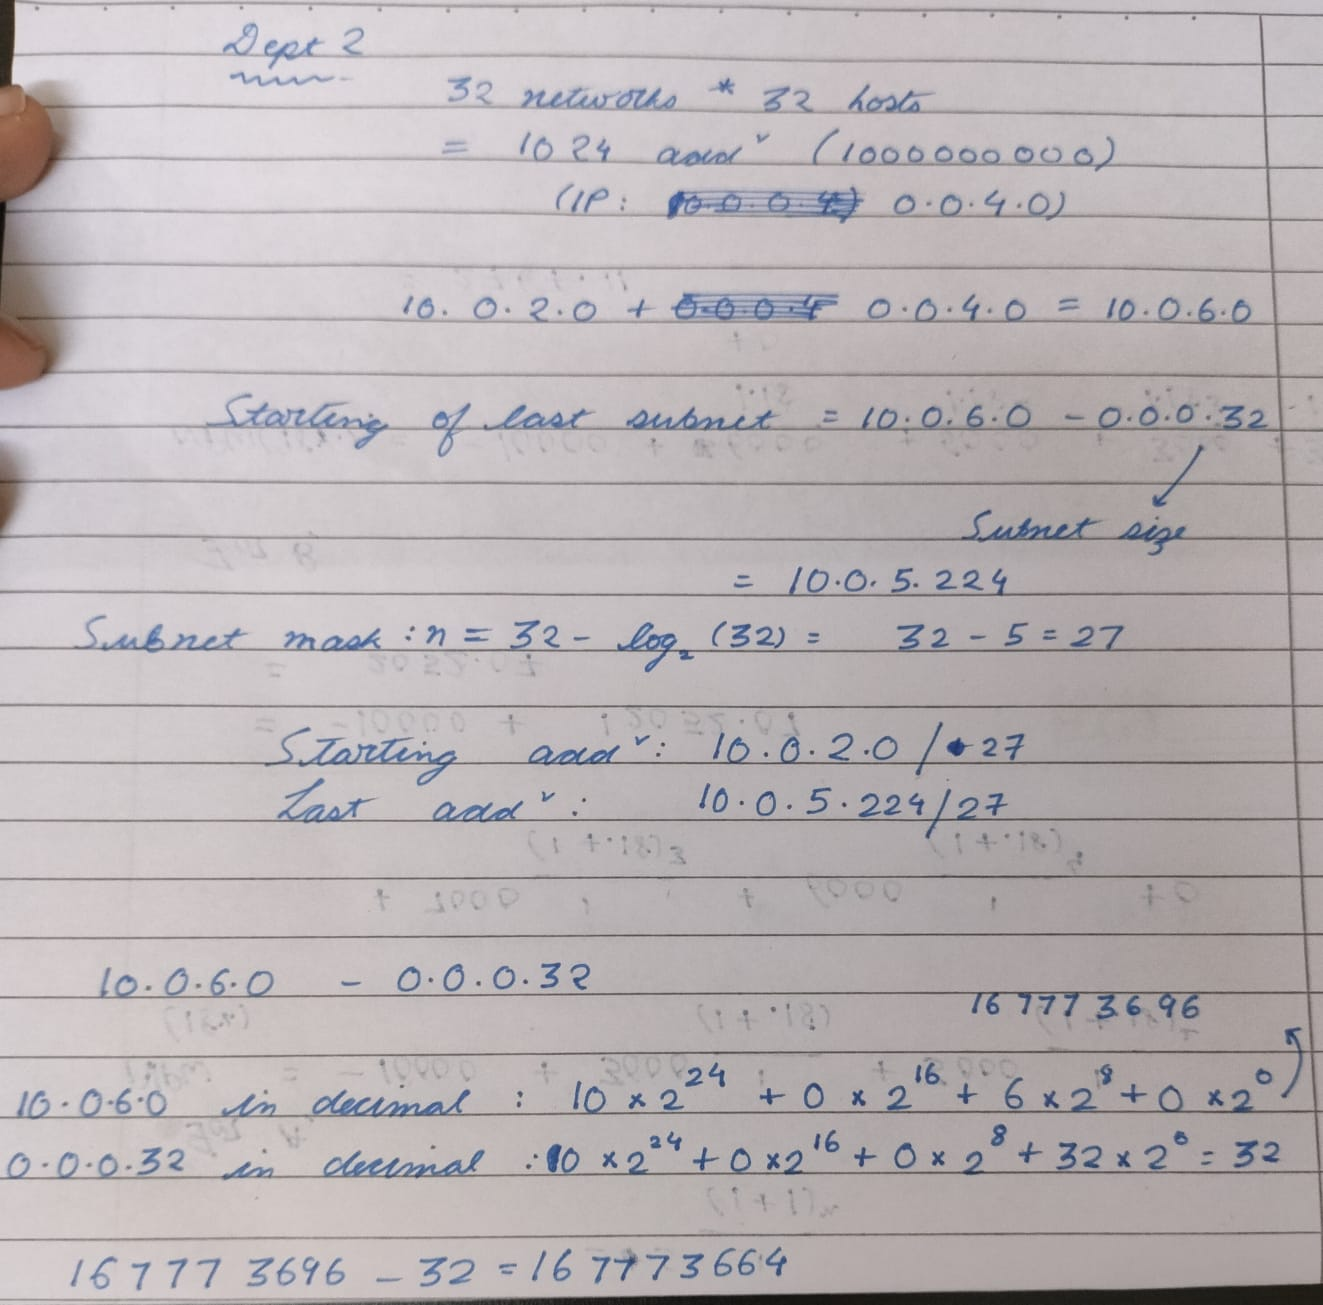 Dept 2
32 networks * 32 hosts
= 1024 addr (1000000000)
(IP: 0.0.4.0)
10.0.2.0 + 0.0.4.0 = 10.0.6.0
Starting of last subnet = 10.0.6.0 - 0.0.0.32
Subnet size
= 10.0.5.224
Subnet mask : n = 32 - log₂ (32) = 32 - 5 = 27
Starting addr : 10.0.2.0 / 27
Last addr : 10.0.5.224/27
10.0.6.0 - 0.0.0.32
16 777 3696
10.0.6.0 in decimal : 10 × 2²⁴ + 0 × 2¹⁶ + 6 × 2⁸ + 0 × 2⁰
0.0.0.32 in decimal : 0 × 2²⁴ + 0 × 2¹⁶ + 0 × 2⁸ + 32 × 2⁰ = 32
16777 3696 - 32 = 167773664